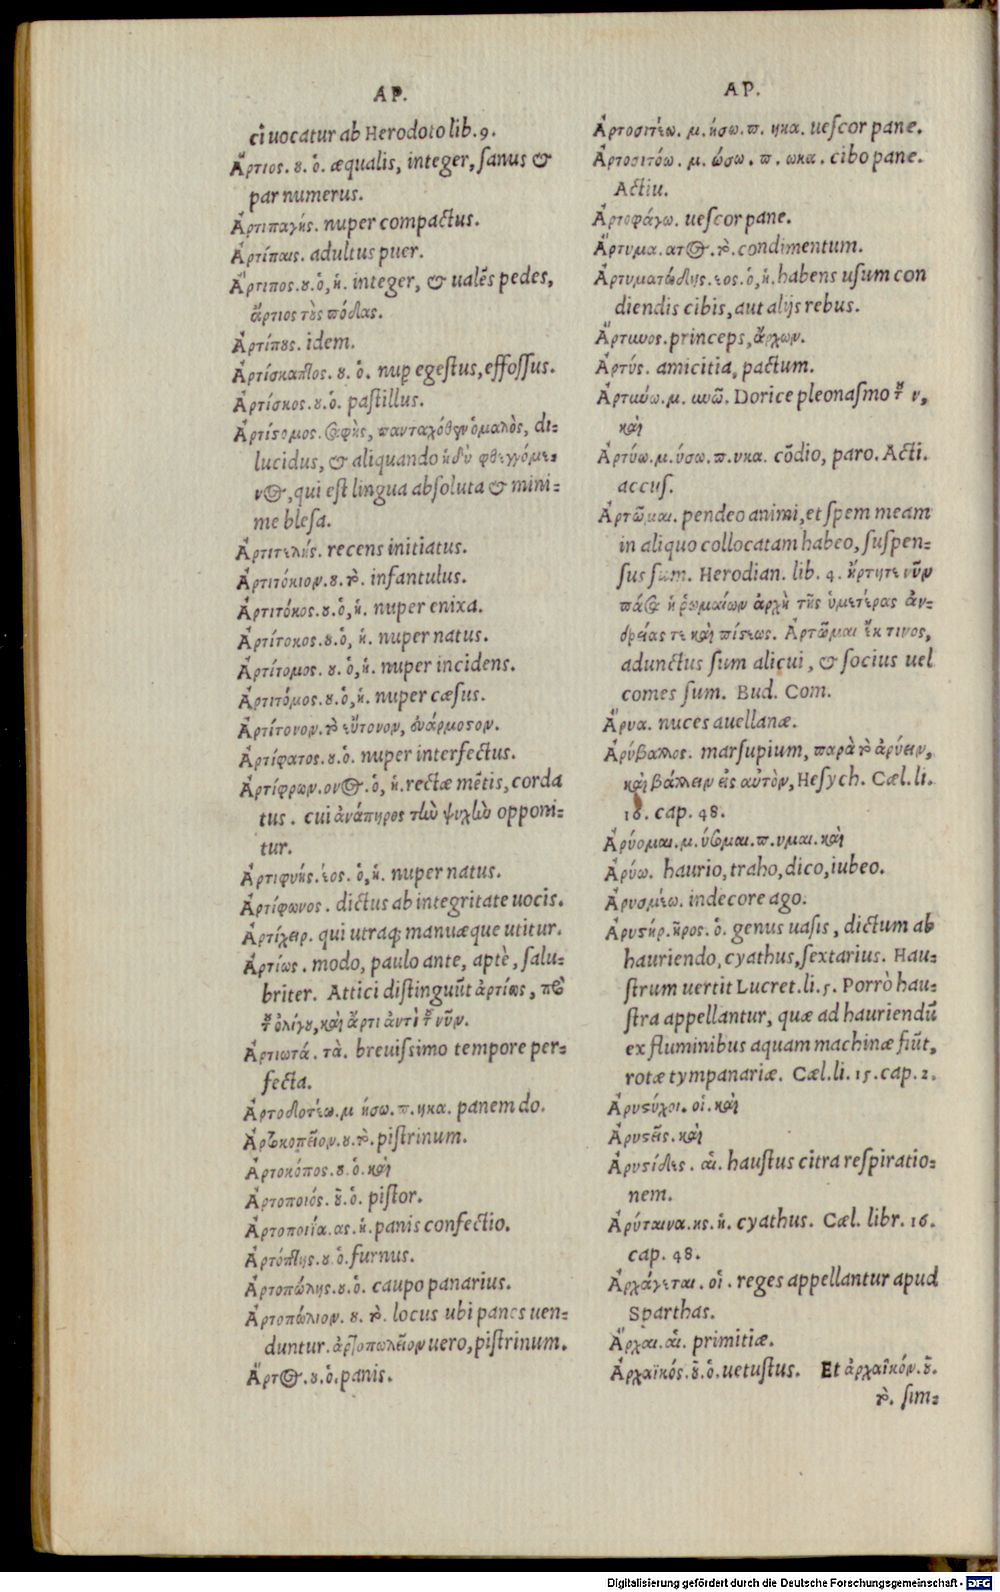 ΑΡ.
ci uocatur ab Herodoto lib. 9.
Ἄρτιος. ου. ὁ. æqualis, integer, sanus &
par numerus.
Ἀρτιπαγής. nuper compactus.
Ἀρτίπαις. adultus puer.
Ἄρτιπος. ου. ὁ, ἡ. integer, & ualẽs pedes,
ἄρτιος τοὺς πόδας.
Ἀρτίπους. idem.
Ἀρτίσκαπτος. ου. ὁ. nup egestus, effossus.
Ἀρτίσκος. ου. ὁ. pastillus.
Ἀρτίστομος. σαφὴς, πανταχόθεν ὁμαλὸς, di-
lucidus, & aliquando ἡδὺ φθεγγόμε-
νος, qui est lingua absoluta & mini-
me blesa.
Ἀρτιτελής. recens initiatus.
Ἀρτιτόκιον. ου. τὸ. infantulus.
Ἀρτιτόκος. ου. ὁ, ἡ. nuper enixa.
Ἀρτίτοκος. ου. ὁ, ἡ. nuper natus.
Ἀρτίτομος. ου. ὁ, ἡ. nuper incidens.
Ἀρτιτόμος. ου. ὁ, ἡ. nuper cæsus.
Ἀρτίτονον. τὸ εὔτονον, ἐνάρμοστον.
Ἀρτίφατος. ου. ὁ. nuper interfectus.
Ἀρτίφρων. ονος. ὁ, ἡ. rectæ mẽtis, corda
tus. cui ἀνάπηρος τὴν ψυχὴν opponi-
tur.
Ἀρτιφυής. έος. ὁ, ἡ. nuper natus.
Ἀρτίφωνος. dictus ab integritate uocis.
Ἀρτίχειρ. qui utraq; manu æque utitur.
Ἀρτίως. modo, paulo ante, aptè, salu-
briter. Attici distinguũt ἀρτίως, πρὸ
τοῦ ὀλίγου, καὶ ἄρτι ἀντὶ τοῦ νῦν.
Ἀρτιωτά. τὰ. breuissimo tempore per-
fecta.
Ἀρτοδοτέω. μ ήσω. π. ηκα. panem do.
Ἀρτοκοπεῖον. ου. τὸ. pistrinum.
Ἀρτοκόπος. ου. ὁ. καὶ
Ἀρτοποιός. οῦ. ὁ. pistor.
Ἀρτοποιΐα. ας. ἡ. panis confectio.
Ἀρτόπτης. ου. ὁ. furnus.
Ἀρτοπώλης. ου. ὁ. caupo panarius.
Ἀρτοπώλιον. ου. τὸ. locus ubi panes uen-
duntur. ἀρτοπωλεῖον uero, pistrinum.
Ἄρτος. ου. ὁ. panis.
ΑΡ.
Ἀρτοσιτέω. μ. ήσω. π. ηκα. uescor pane.
Ἀρτοσιτόω. μ. ώσω. π. ωκα. cibo pane.
Actiu.
Ἀρτοφάγω. uescor pane.
Ἄρτυμα. ατος. τὸ. condimentum.
Ἀρτυματώδης. εος. ὁ, ἡ. habens usum con
diendis cibis, aut alijs rebus.
Ἄρτυνος. princeps, ἄρχων.
Ἀρτύς. amicitia, pactum.
Ἀρτύνω. μ. υνῶ. Dorice pleonasmo τοῦ ν,
καὶ
Ἀρτύω. μ. ύσω. π. υκα. cõdio, paro. Acti.
accus.
Ἀρτῶμαι. pendeo animi, et spem meam
in aliquo collocatam habeo, suspen-
sus sum. Herodian. lib. 4. ἤρτηται νῦν
πᾶσα ἡ ῥωμαίων ἀρχὴ τῆς ὑμετέρας ἀν-
δρείας τε καὶ πίστεως. Ἀρτῶμαι ἔκ τινος,
adunctus sum alicui, & socius uel
comes sum. Bud. Com.
Ἄρυα. nuces auellanæ.
Ἀρύβαλλος. marsupium, παρὰ τὸ ἀρύειν,
καὶ βάλλειν εἰς αὐτὸν, Hesych. Cæl. li.
16. cap. 48.
Ἀρύομαι. μ. ύσομαι. π. υμαι. καὶ
Ἀρύω. haurio, traho, dico, iubeo.
Ἀρυσμέω. indecore ago.
Ἀρυστήρ. ῆρος. ὁ. genus uasis, dictum ab
hauriendo, cyathus, sextarius. Hau-
strum uertit Lucret. li. 5. Porrò hau-
stra appellantur, quæ ad hauriendũ
ex fluminibus aquam machinæ fiũt,
rotæ tympanariæ. Cæl. li. 15. cap. 2.
Ἀρυστύχοι. οἱ. καὶ
Ἀρυστεῖς. καὶ
Ἀρυστίδες. αἱ. haustus citra respiratio-
nem.
Ἀρύταινα. ης. ἡ. cyathus. Cæl. libr. 16.
cap. 48.
Ἀρχάγεται. οἱ. reges appellantur apud
Sparthas.
Ἄρχαι. αἱ. primitiæ.
Ἀρχαϊκός. οῦ. ὁ. uetustus. Et ἀρχαϊκόν. οῦ.
τὸ. sim-
Digitalisierung gefördert durch die Deutsche Forschungsgemeinschaft - DFG